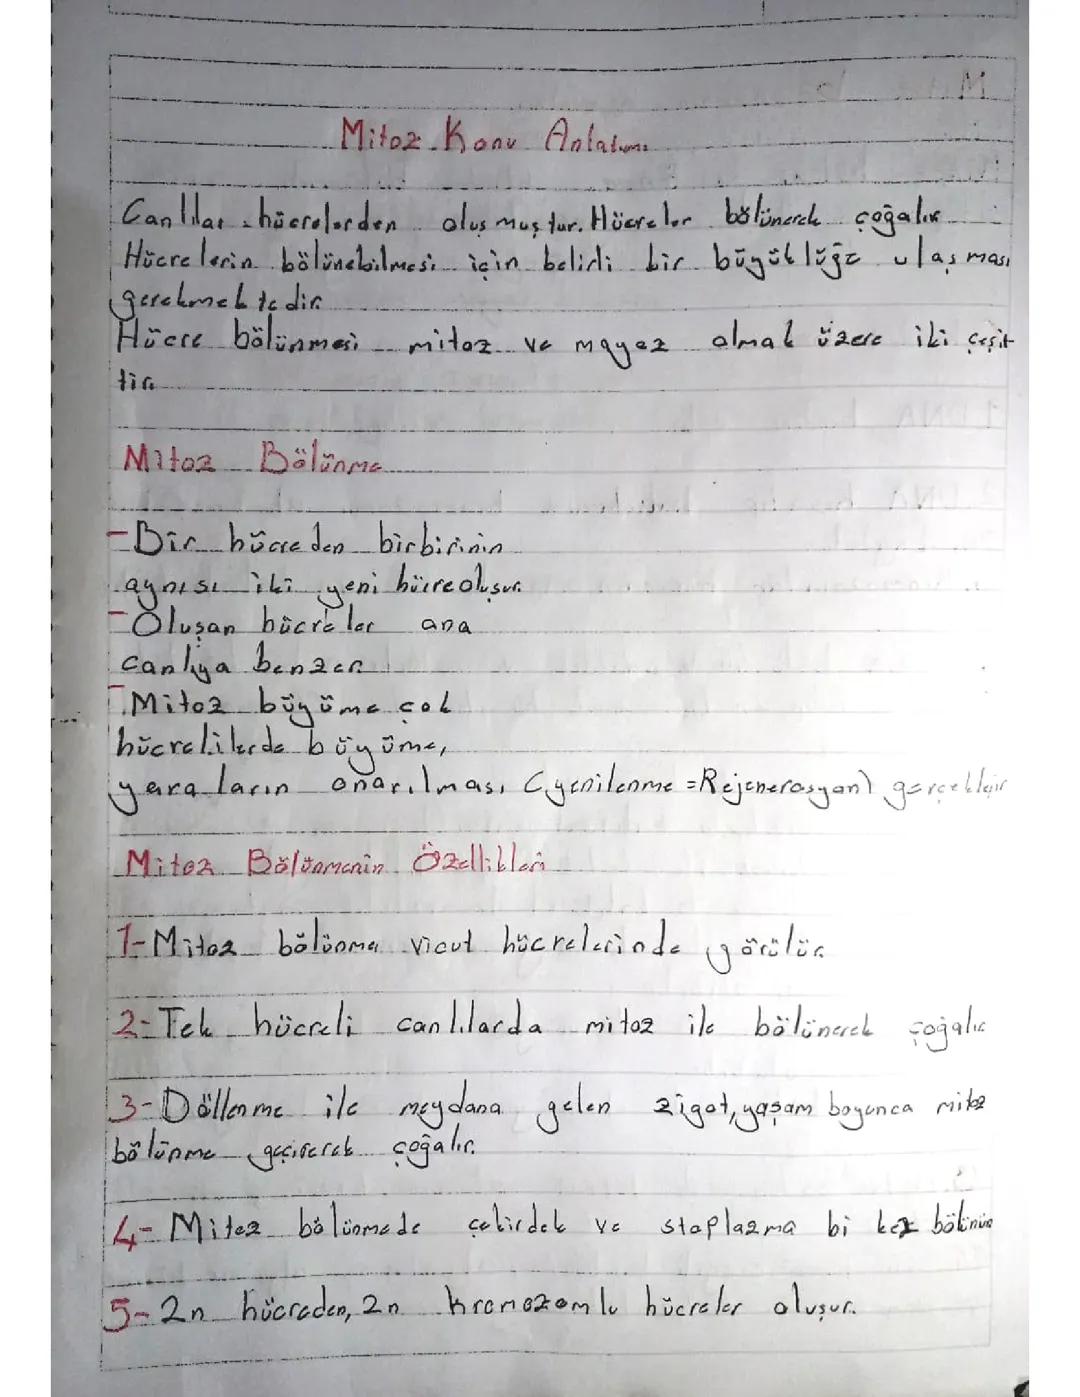 Mitoz Konu Anlatımı
Canlılar hücrelerden oluşmuştur. Hücreler bölünerek çoğalır.
Hücrelerin bölünebilmesi için belirli bir büyüklüğe ulaşması
gerekmektedir.
Hücre bölünmesi mitoz ve mayoz olmak üzere iki çeşit-
tir.
Mitoz Bölünme
- Bir hücreden birbirinin
aynısı iki yeni hücre oluşur.
- Oluşan hücreler ana
canlıya benzer.
- Mitoz büyüme çok
hücrelilerde büyüme,
yaraların onarılması (yenilenme = Rejenerasyon) gerçekleşir
Mitoz Bölünmenin Özellikleri
1- Mitoz bölünme vücut hücrelerinde görülür.
2- Tek hücreli canlılarda mitoz ile bölünerek çoğalır
3- Döllenme ile meydana gelen zigot, yaşam boyunca mitoz
bölünme geçirerek çoğalır.
4- Mitoz bölünmede çekirdek ve stoplazma bi kez bölünür
5- 2n hücreden, 2n kromozomlu hücreler oluşur.